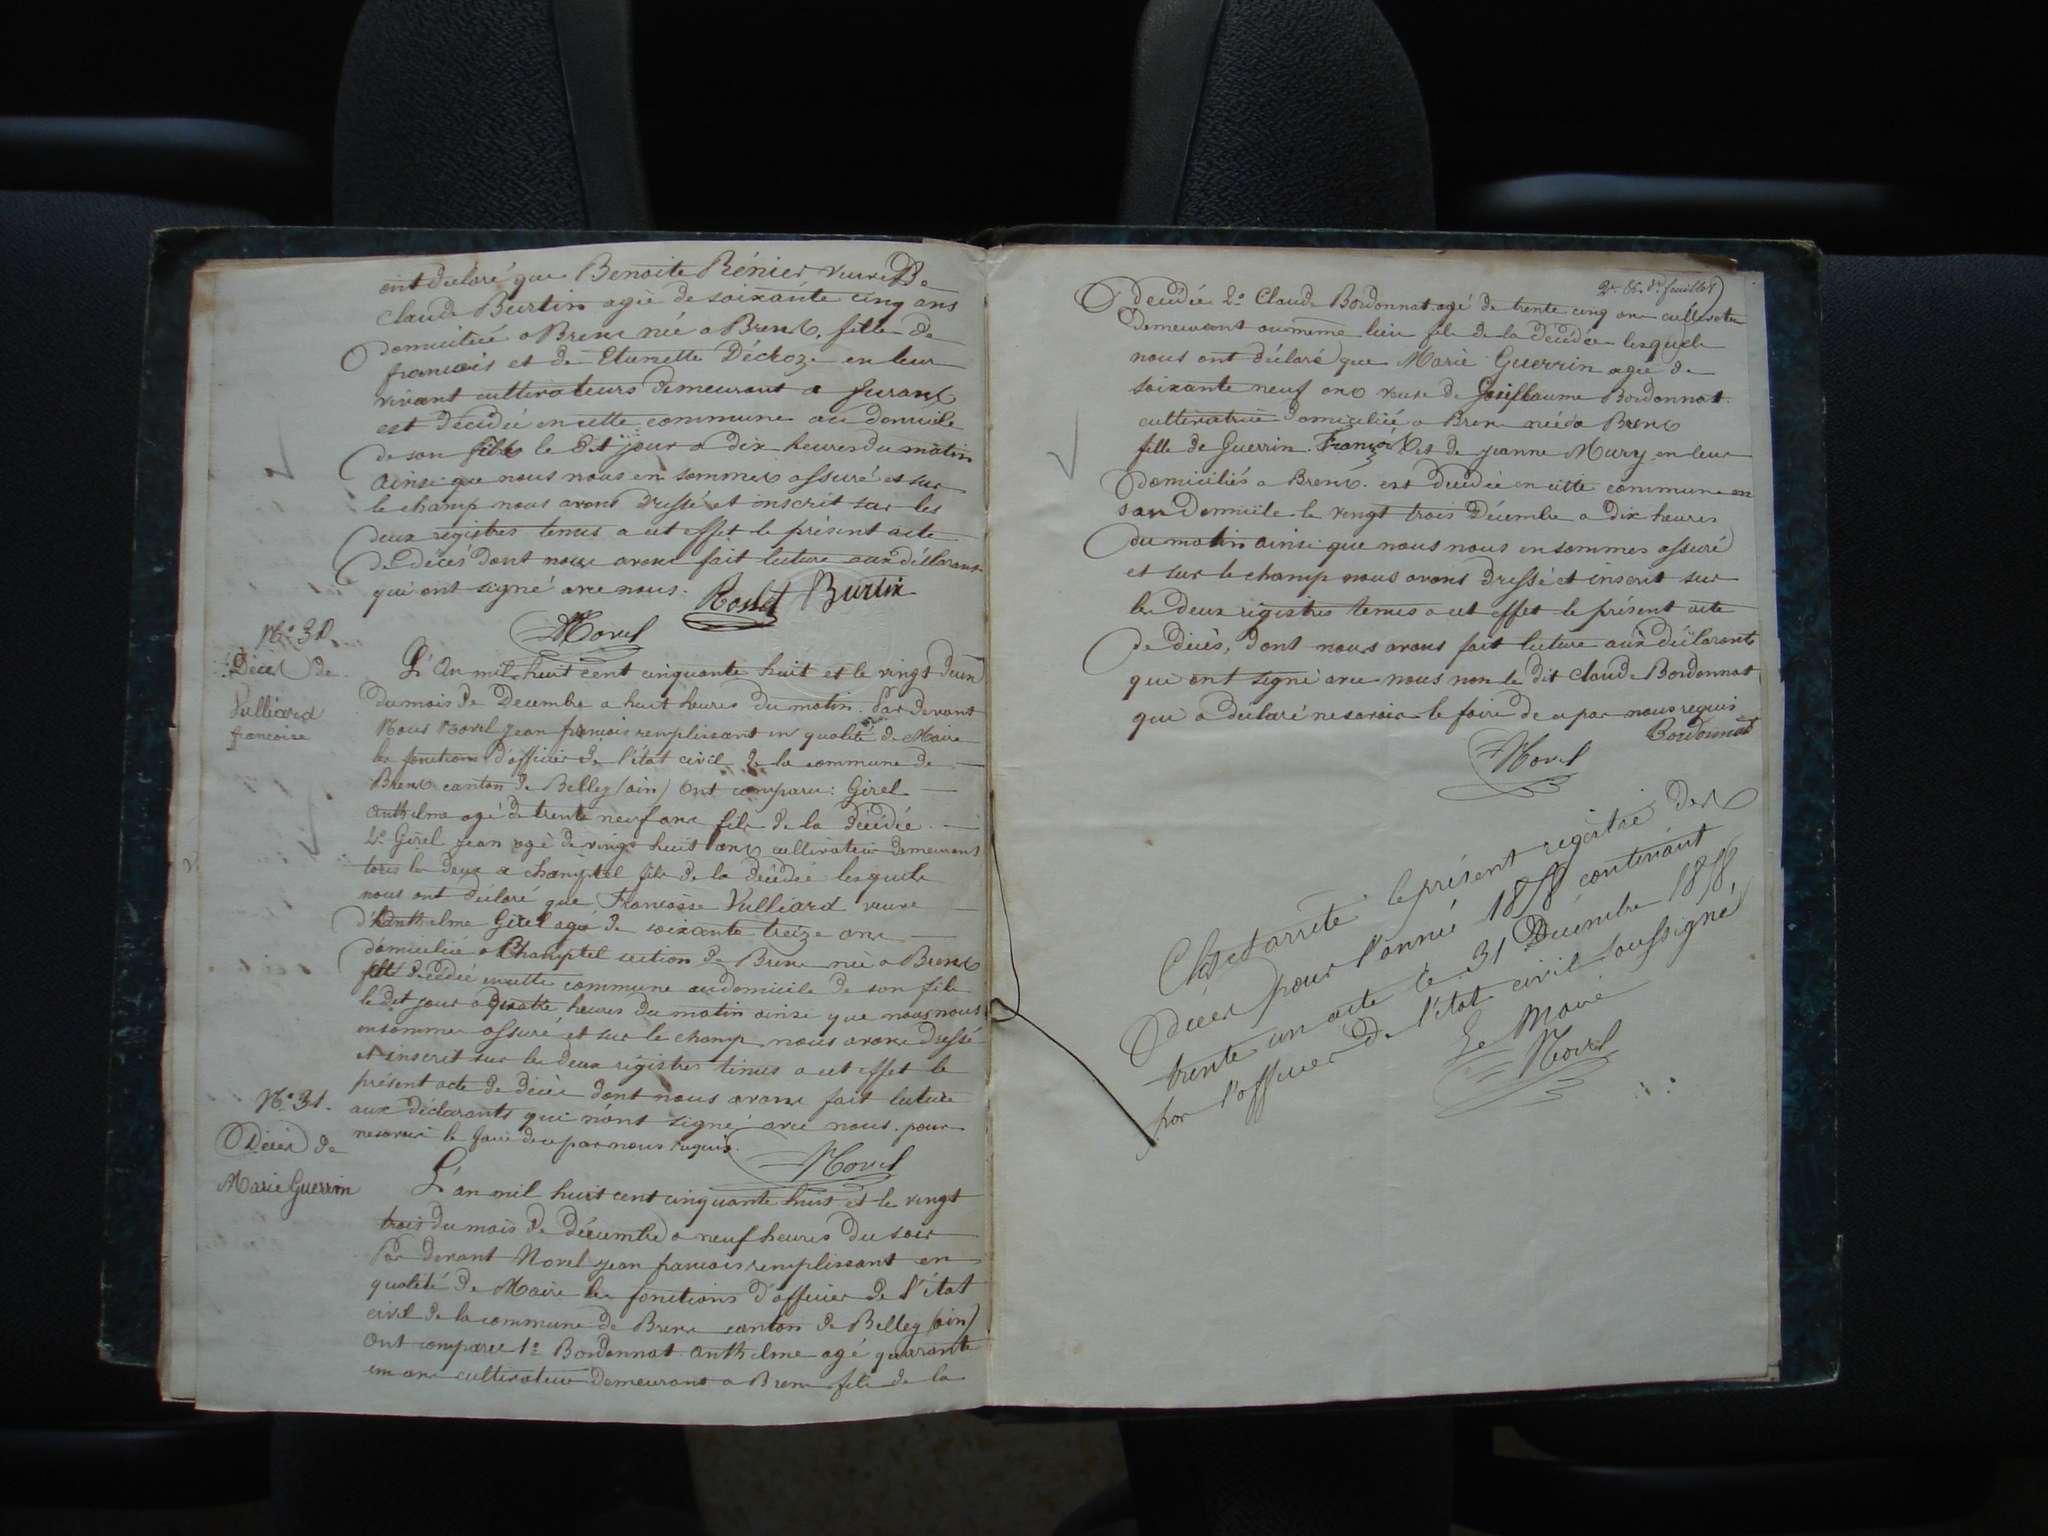 ont déclaré que Benoite Rénier veuve De
Claude Burtin agée de soixante cinq ans
domiciliée a Brens née a Brens, fille de
francois et de Etiennette Décroze en leur
vivant cultivateurs demeurant a
est décédée en cette commune au domicile
de son fils le dit jour a dix heures du matin
ainsi que nous nous en sommes assuré et sur
le champ nous avons dressé et inscrit sur les
deux régistres tenus a cet effet le présent acte
de décès dont nous avons fait lecture aux déclarants
qui ont signé avec nous. Roslet Burtin
Novel
N° 30
Décès de
Vulliard
francoise
L'An mil huit cent cinquante huit et le vingt deux
du mois de Decembre a huit heures du matin. Par devant
Nous Novel jean francois remplissant en qualité de Maire
les fonctions d'officier de l'état civil de la commune de
Brens canton de Belley (ain) Ont comparu: Girel
anthelme agé de trente neuf ans fils de la décédée
2° Girel jean agé de vingt huit ans cultivateur demeurans
tous les deux a champtel fils de la décédée lesquels
nous ont déclaré que Francoise Vulliard veuve
d'Anthelme Girel agée de soixante treize ans
domiciliée a Champtel section de Brens née a Brens
est décédée en cette commune au domicile de son fils
le dit jour a quatre heures du matin ainsi que nous nous
en sommes assuré et sur le champ nous avons dressé
et inscrit sur les deux régistres tenus a cet effet le
présent acte de décès dont nous avons fait lecture
aux déclarants qui n'ont signé avec nous pour
ne savoir le faire de ce par nous requis.
Novel
N° 31.
Décès de
Marie Guerrin
L'an mil huit cent cinquante huit et le vingt
trois du mois de décembre a neuf heures du soir
Par devant Novel jean francois remplissant en
qualité de Maire les fonctions d'officier de l'état
civil de la commune de Brens canton de Belley (ain)
Ont comparu 1° Bordonnat anthelme agé quarante
un ans cultivateur demeurant a Brens fils de la
2e. &. dr. feuillet
décédée 2° Claude Bordonnat agé de trente cinq ans cultivateur
demeurant au même lieu fils de la décédée lesquels
nous ont déclaré que Marie Guerrin agée de
soixante neuf ans veuve de Guillaume Bordonnat
cultivatrice domiciliée a Brens née a Brens
fille de Guerrin François et de jeanne Mury en leur
domiciliés a Brens. est décédée en cette commune en
son domicile le vingt trois Décembre a dix heures
du matin ainsi que nous nous en sommes assuré
et sur le champ nous avons dressé et inscrit sur
les deux régistres tenus a cet effet le présent acte
de décès, dont nous avons fait lecture aux déclarants
qui ont signé avec nous non le dit Claude Bordonnat
qui a déclaré ne savoir le faire de ce par nous requis
Bordonnat
Novel
Clos et arrété le présent régistre des
décès pour l'année 1858 contenant
trente un acte le 31 Décembre 1858,
par l'officier de l'état civil soussigné
Le Maire
Novel